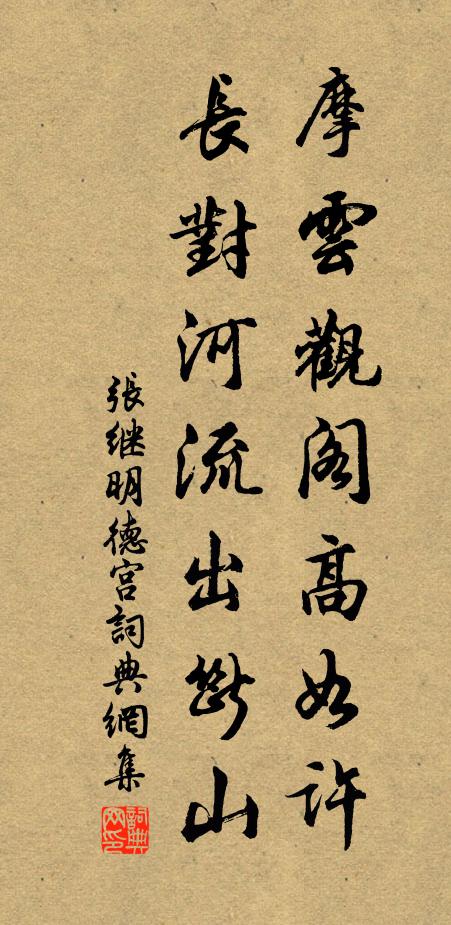 摩雲觀閣高如許
長對河流出斷山
張继明德宮詞典網集
詞典网印